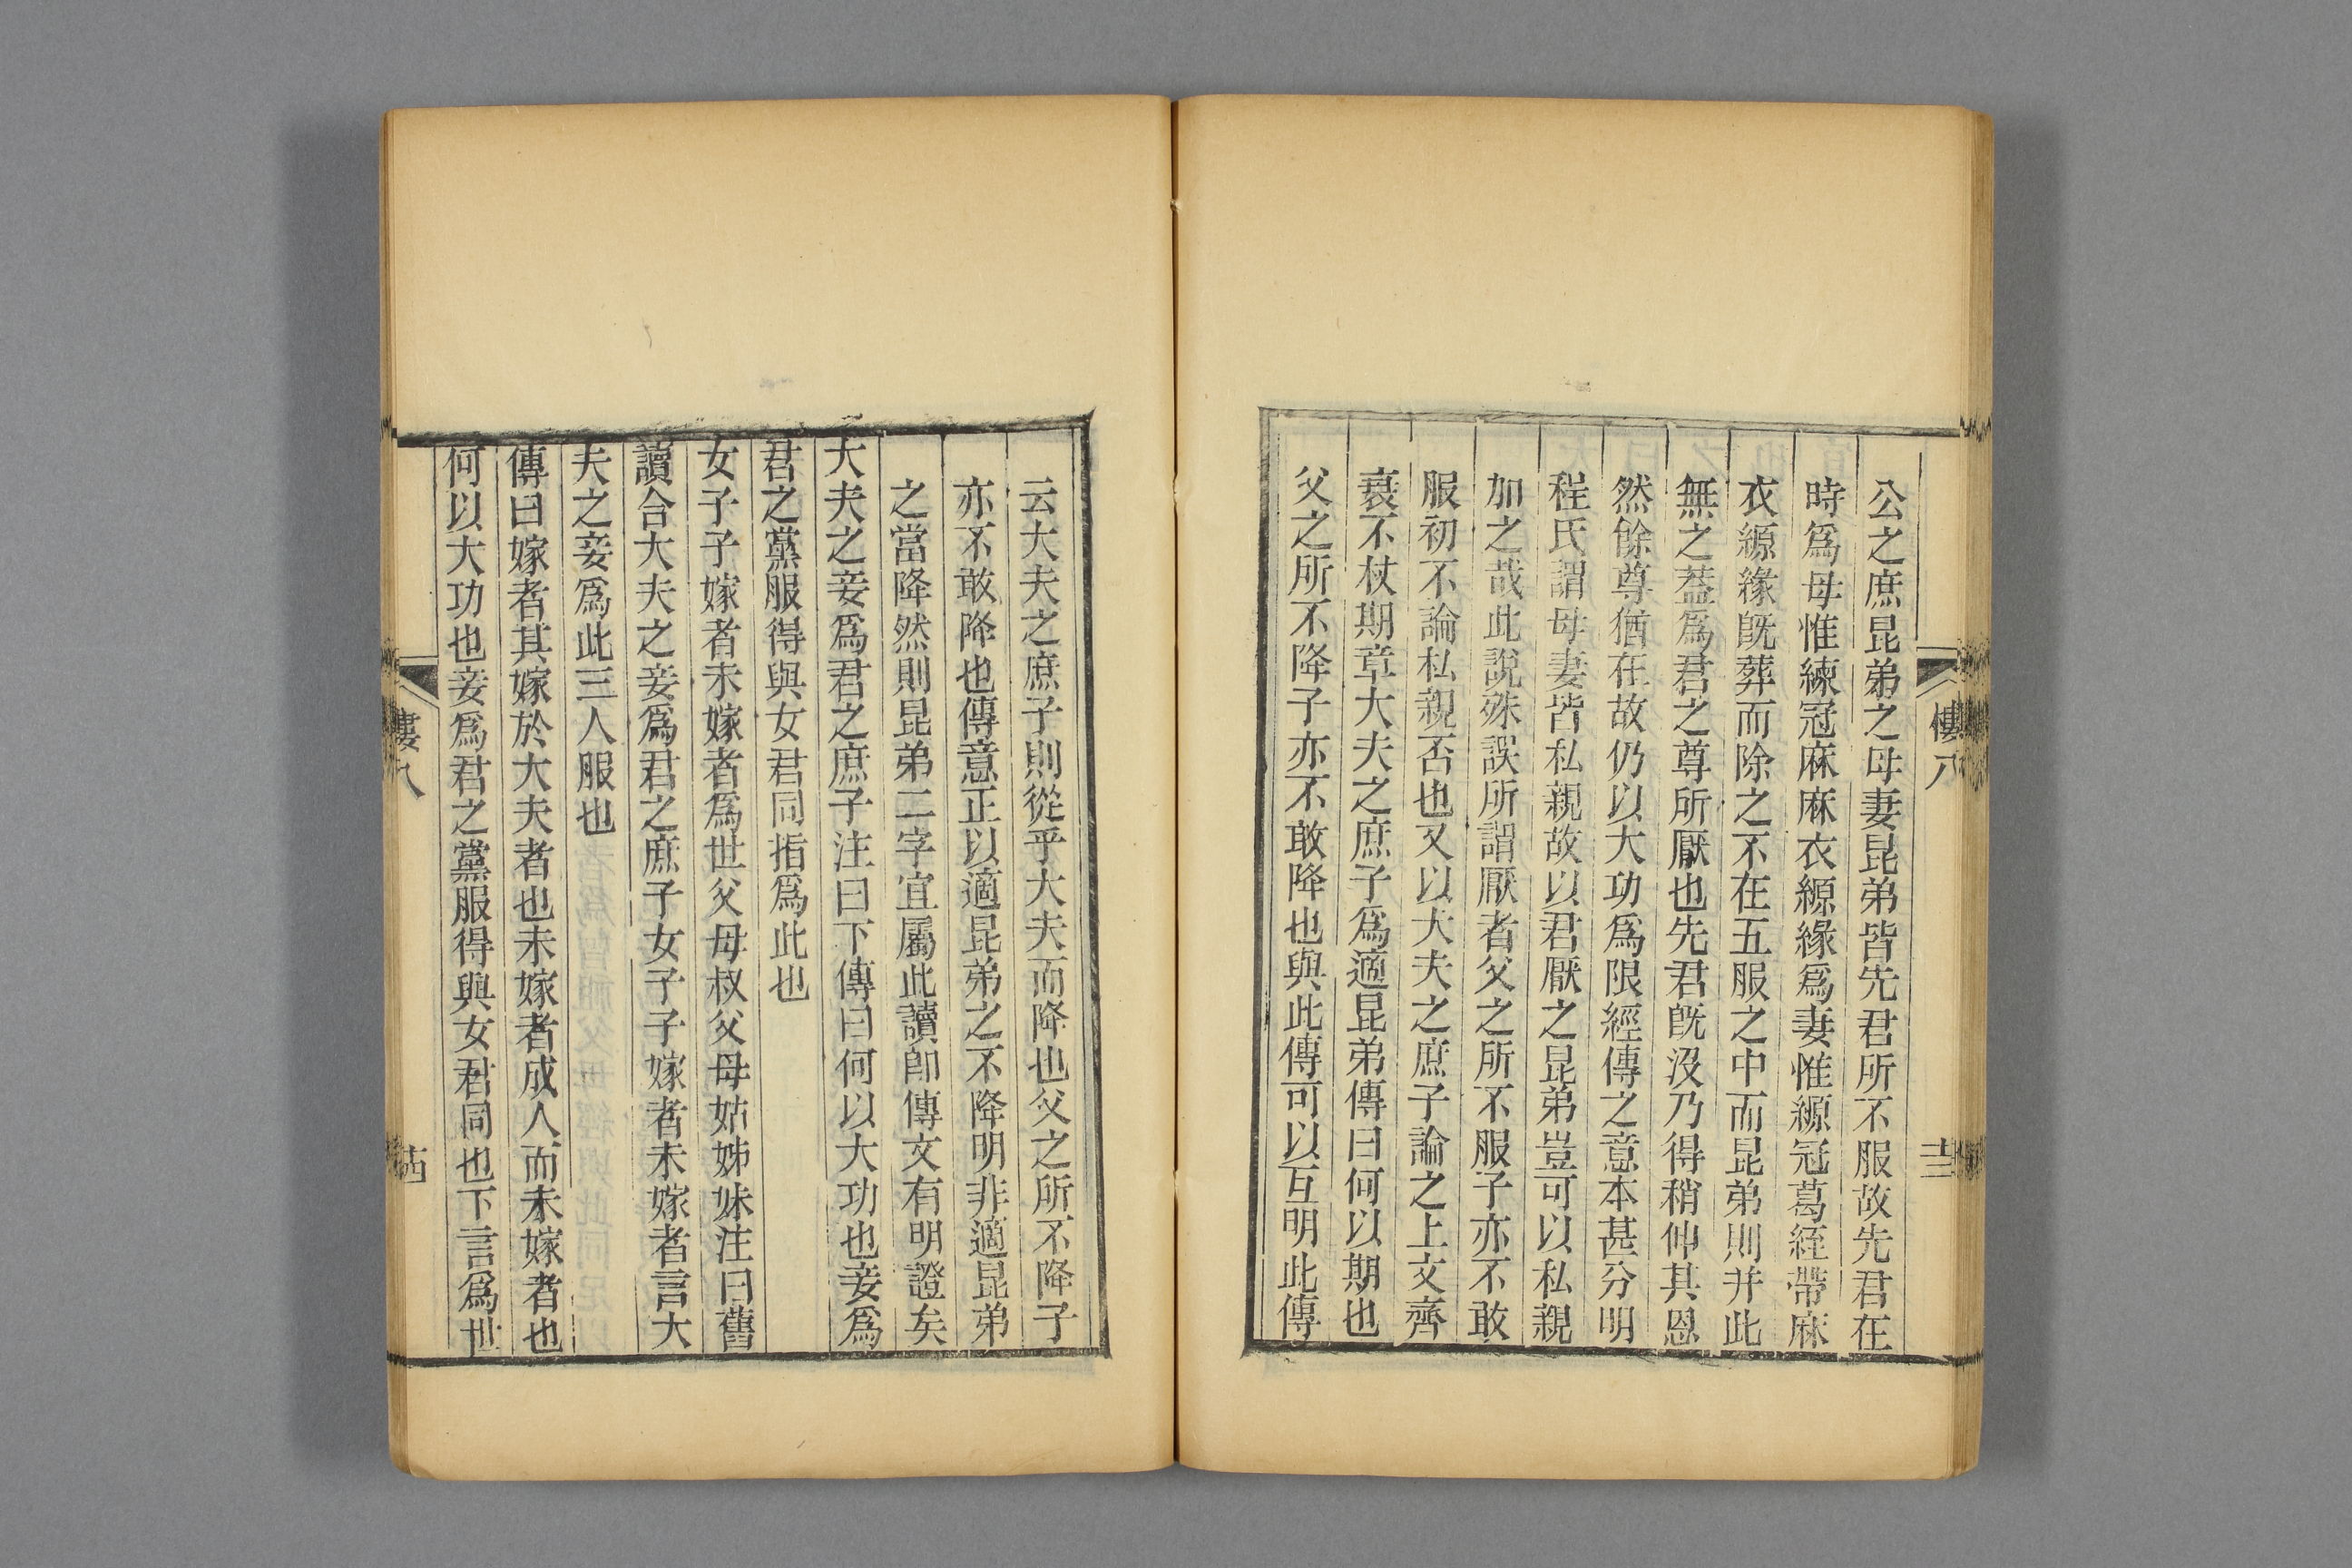 公之庶昆弟之母妻昆弟皆先君所不服故先君在
時爲母惟練冠麻麻衣縓緣爲妻惟縓冠葛絰帶麻
衣縓緣旣葬而除之不在五服之中而昆弟則并此
無之葢爲君之尊所厭也先君旣沒乃得稍伸其恩
然餘尊猶在故仍以大功爲限經傳之意本甚分明
程氏謂母妻皆私親故以君厭之昆弟豈可以私親
加之哉此說殊誤所謂厭者父之所不服子亦不敢
服初不論私親否也又以大夫之庶子論之上文齊
衰不杖期章大夫之庶子爲適昆弟傳曰何以期也
父之所不降子亦不敢降也與此傳可以互明此傳
八
十三
云大夫之庶子則從乎大夫而降也父之所不降子
亦不敢降也傳意正以適昆弟之不降明非適昆弟
之當降然則昆弟二字宜屬此讀卽傳文有明證矣
大夫之妾爲君之庶子注曰下傳曰何以大功也妾爲
君之黨服得與女君同指爲此也
女子子嫁者未嫁者爲世父母叔父母姑姊妹注曰舊
讀合大夫之妾爲君之庶子女子子嫁者未嫁者言大
夫之妾爲此三人服也
傳曰嫁者其嫁於大夫者也未嫁者成人而未嫁者也
何以大功也妾爲君之黨服得與女君同也下言爲世
八